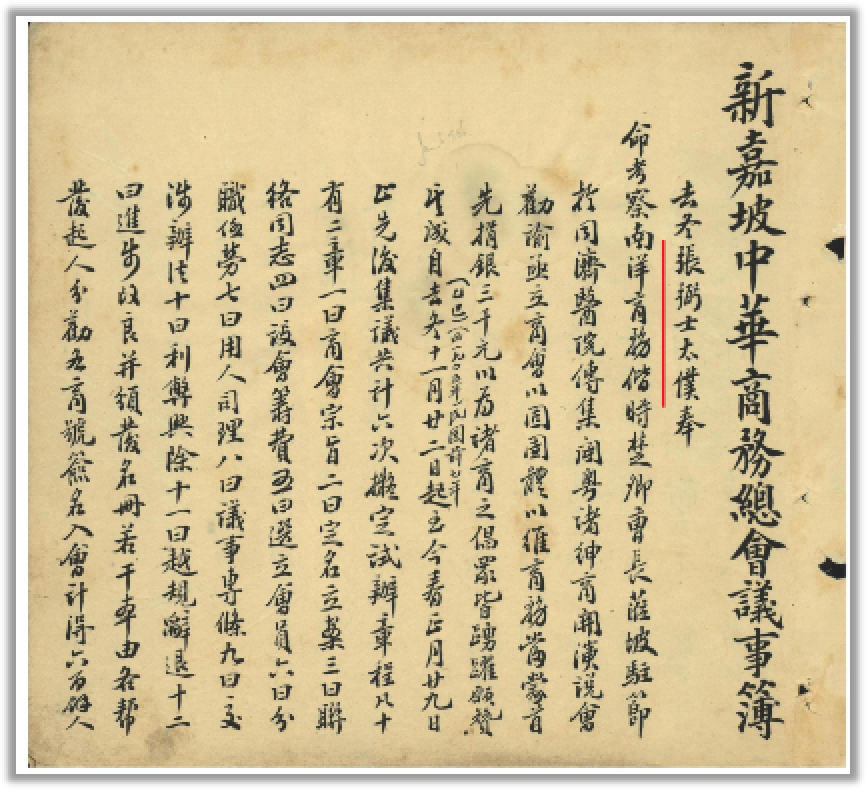 新嘉坡中華商務總會議事簿
去冬張弼士太僕奉
命考察南洋商務偕時楚卿會長蒞坡駐節
於同濟醫院傳集閩粵諸紳商開演說會
勸諭亟立商會以固團體以維商務當蒙首
先捐銀三千元以為諸商之倡眾皆踴躍願贊
其成自去冬十一月廿二日起至今春正月廿九日
止先後集議共計六次擬定試辦章程八十
有二章一曰商會宗旨二曰定名立案三曰聯
絡同志四曰設會籌費五曰選立會員六曰分
職任勞七曰用人司理八曰議事專條九曰交
涉辦法十曰利弊興除十一曰越規辭退十二
曰進步改良并頒發名冊若干本由各幫
發起人分勸各商號簽名入會計得六百餘人